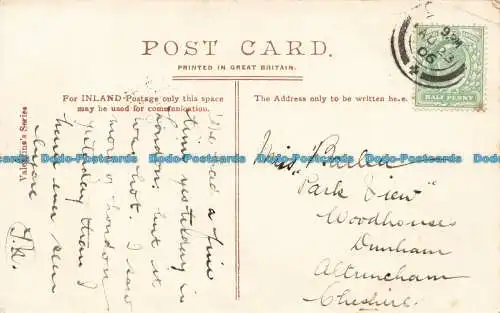 POST CARD.
PRINTED IN GREAT BRITAIN.
For INLAND Postage only this space
may be used for communication.
The Address only to be written here.
HALF PENNY
Valentine's Series
We had a fine
time yesterday in
London; but it
was hot. I saw
more of London
yesterday than I
have ever seen
before
Miss Barber
"Park View"
Woodhouses
Dunham
Altrincham
Cheshire.
Dodo-Postcards Dodo-Postcards Dodo-Postcards Dodo-Postcards Dodo-Postcards Dodo-Postcards